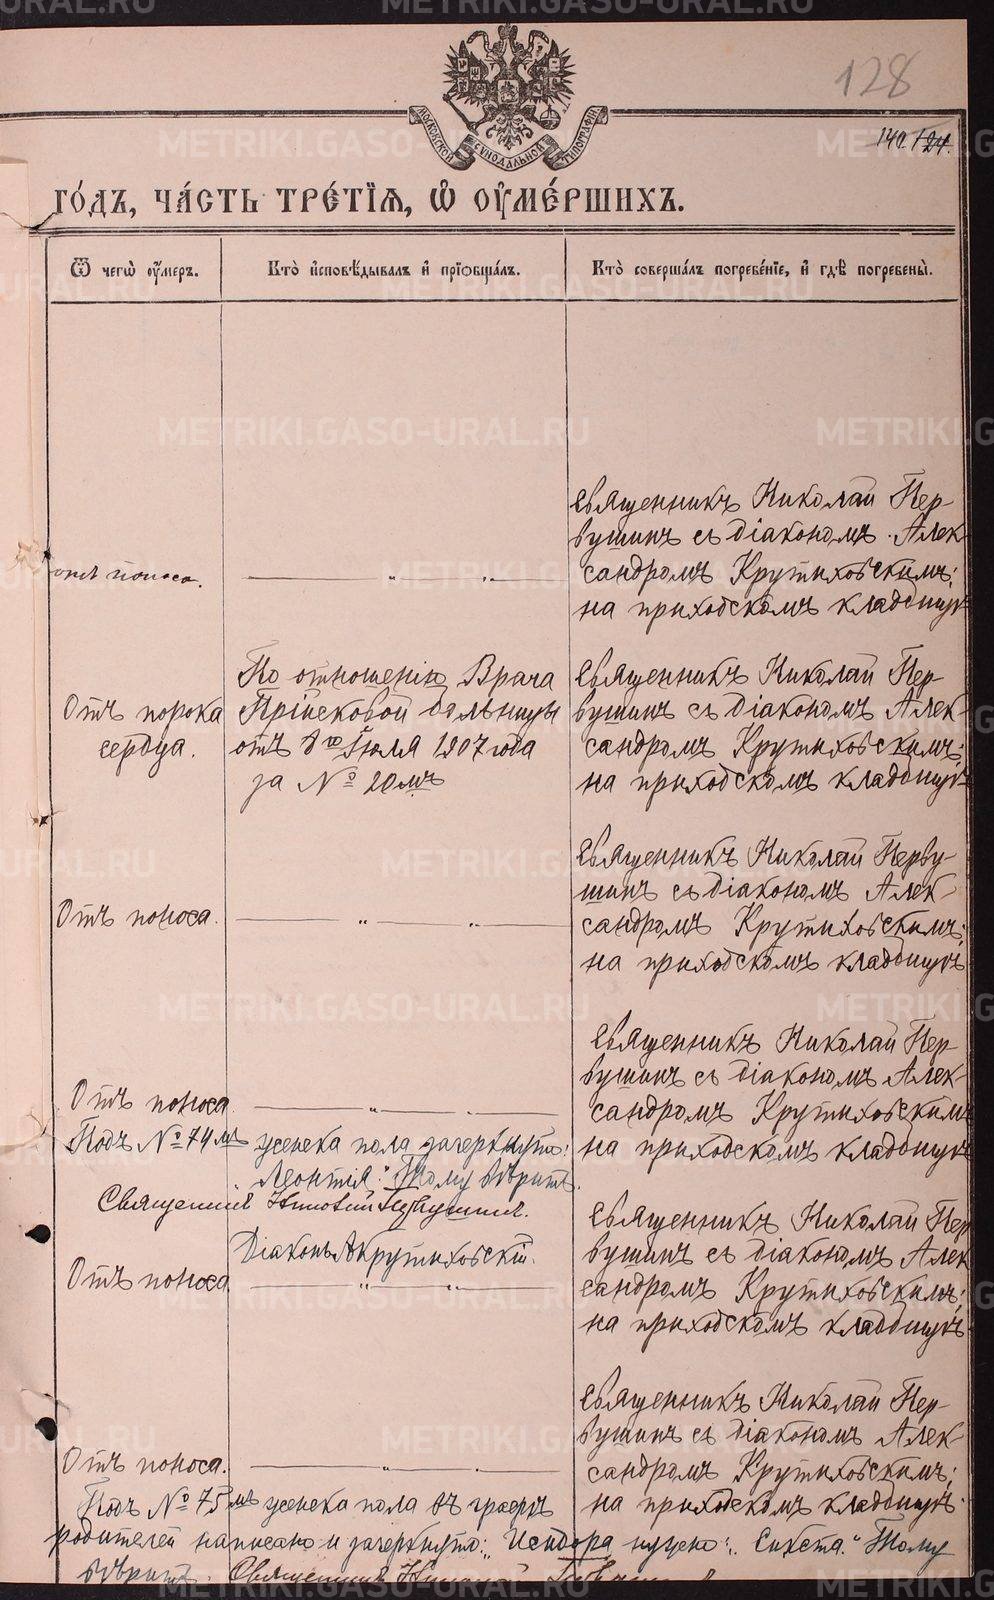 128
140
124.
МОСКОВСКОЙ СѴНОДАЛЬНОЙ ТИПОГРАФІИ.
ГО́ДЪ, ЧА́СТЬ ТРЕ́ТІѦ, Ѽ ОУ҆МЕ́РШИХЪ.
Ѿ чегѡ̀ оу҆́мерꙿ.
Кто̀ и҆сповѣ́дывалъ и҆ прїѡбща́лъ.
Кто̀ соверша́лъ погребе́нїе, и҆ гдѣ̀ погребены̀.
Священникъ Николай Пер-
вушинъ съ діакономъ Алек-
сандромъ Крутиховскимъ;
на приходскомъ кладбищѣ
отъ поноса.
Отъ порока
сердца.
По отношенію Врача
Пріисковой больницы
отъ 8го Іюля 1907 года
за № 20мъ
Священникъ Николай Пер-
вушинъ съ діакономъ Алек-
сандромъ Крутиховскимъ;
на приходскомъ кладбищѣ
Отъ поноса.
Священникъ Николай Перву-
шинъ съ діакономъ Алек-
сандромъ Крутиховскимъ;
на приходскомъ кладбищѣ
Отъ поноса
Священникъ Николай Пер-
вушинъ съ діакономъ Алек-
сандромъ Крутиховскимъ
на приходскомъ кладбищѣ
Подъ № 74мъ женска пола зачеркнуто:
"Леонтія." Тому вѣрить.
Священник Николай Первушин.
Діаконъ А Крутиховскій.
Отъ поноса.
Священникъ Николай Пер
вушинъ съ діакономъ Алек
сандромъ Крутиховскимъ;
на приходскомъ кладбищѣ
Отъ поноса.
Священникъ Николай Пер-
вушинъ съ діакономъ Алек-
сандромъ Крутиховскимъ;
на приходскомъ кладбищѣ
Подъ № 75мъ женска пола въ графѣ
родителей написано и зачеркнуто: "Исидора нужно: "Сикста." Тому
вѣрить. Священник Николай
METRIKI.GASO-URAL.RU